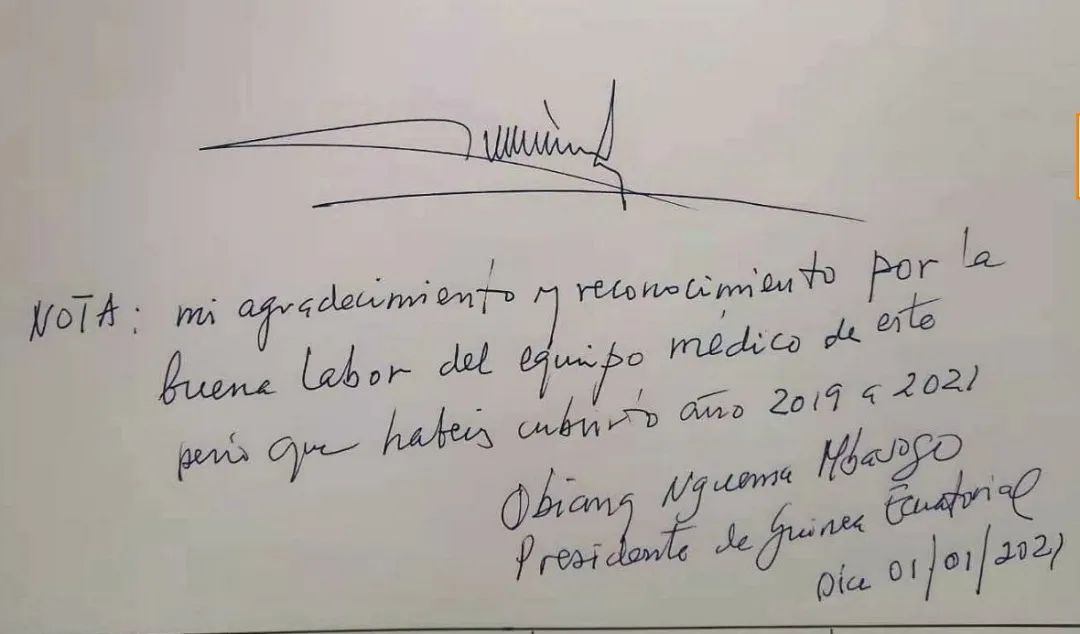 NOTA: mi agradecimiento y reconocimiento por la
buena labor del equipo médico de este
perio que habeis cubierto año 2019 a 2021
Obiang Nguema Mbasogo
Presidente de Guinea Ecuatorial
Día 01/01/2021